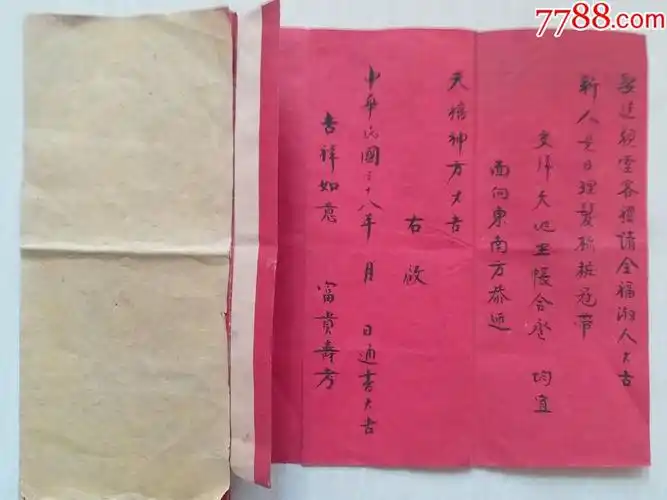 7788.com
娶送親堂客擇請全福淑人大吉
新人是日理髮梳粧冠帶
交拜天地坐帳合卺 均宜
面向東南方恭迎
天禧神方大吉
右啟
中華民國三十八年 月 日通書大吉
吉祥如意 富貴壽考